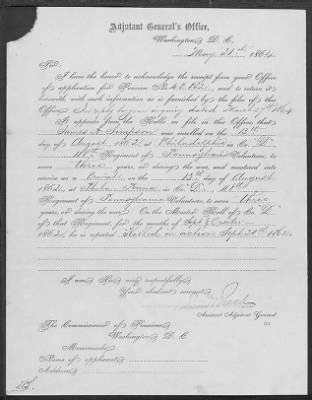 Adjutant General's Office,
Washington, D. C.
May 21st 1864
Sir:
I have the honor to acknowledge the receipt from your Office
of application for Pension No. and to return it
herewith, with such information as is furnished by the files of this
Office.
It appears from the Rolls on file in this Office, that
was enrolled on the 13th
day of August 1862, at Philadelphia in Co. "D"
Regiment of Pennsylvania Volunteers, to
serve three years, or during the war, and mustered into
service as a Private on the 13th day of August
1862, at in Co. "D"
Regiment of Pennsylvania Volunteers, to serve three
years, or during the war. On the Muster Roll of Co. "D"
of that Regiment, for the months of Sept &
1862, he is reported Killed in action Sept. 20th 1862.
I am Sir, very respectfully,
Your obedient servant,
Assistant Adjutant General
The Commissioner of Pensions,
Washington, D. C.
Memoranda:
Name of applicant
Address